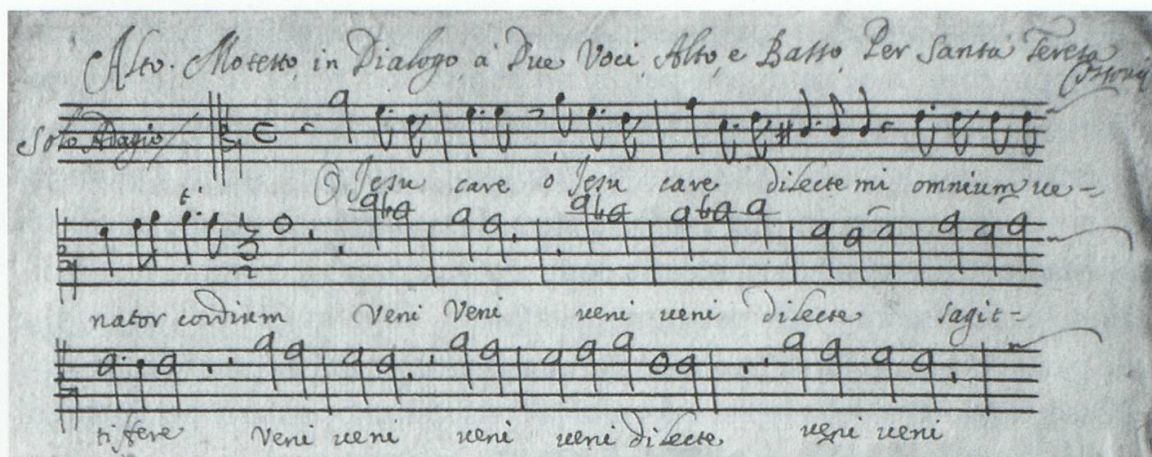 Alto. Motetto in Dialogo à Due Voci Alto e Basso Per Santa Teresa
Solo Adagio
O Jesu care ò Jesu care dilecte mi omnium ve-
t.
nator cordium veni veni veni veni dilecte sagit-
tifere veni veni veni veni dilecte veni veni